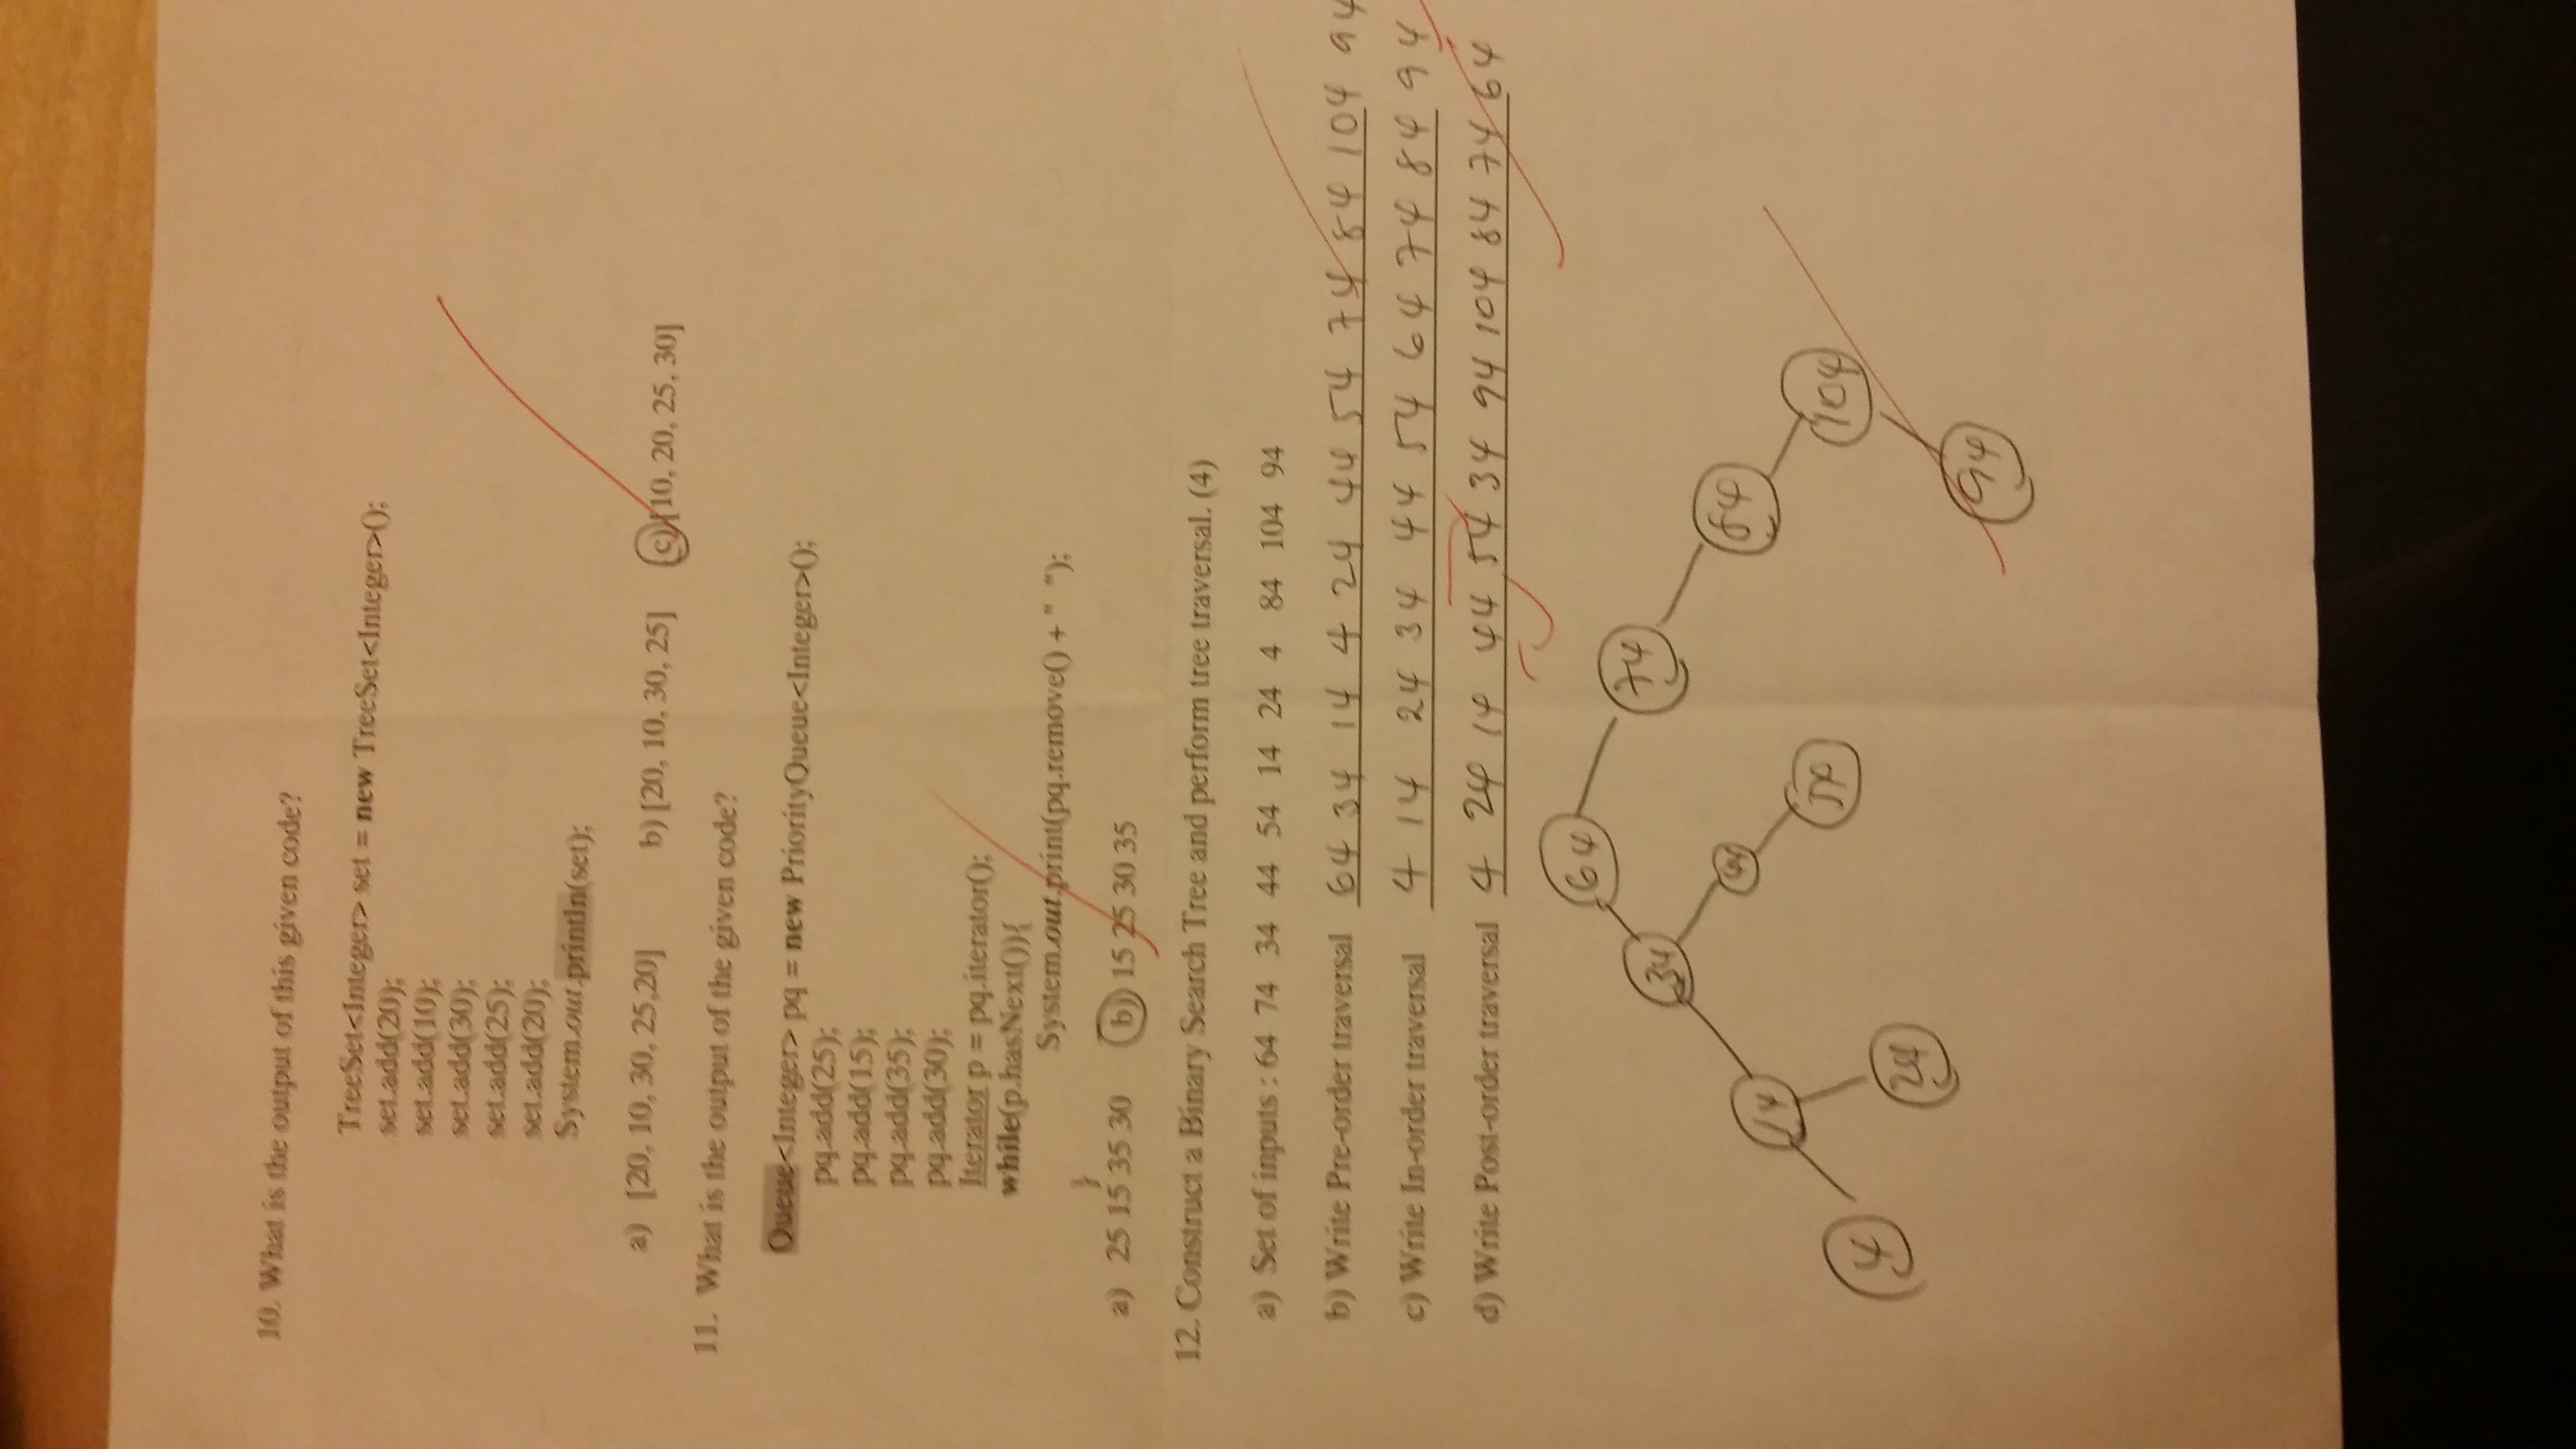 10. What is the output of this given code?
TreeSet<Integer> set = new TreeSet<Integer>();
set.add(20);
set.add(10);
set.add(30);
set.add(25);
set.add(20);
System.out.println(set);
a) [20, 10, 30, 25,20] b) [20, 10, 30, 25] c) [10, 20, 25, 30]
11. What is the output of the given code?
Queue<Integer> pq = new PriorityQueue<Integer>();
pq.add(25);
pq.add(15);
pq.add(35);
pq.add(30);
Iterator p = pq.iterator();
while(p.hasNext()){
System.out.print(pq.remove() + "  ");
}
a) 25 15 35 30 b) 15 25 30 35
12. Construct a Binary Search Tree and perform tree traversal. (4)
a) Set of inputs : 64 74 34 44 54 14 24 4 84 104 94
b) Write Pre-order traversal 64 34 14 4 24 44 54 74 84 104 94
c) Write In-order traversal 4 14 24 34 44 54 64 74 84 94
d) Write Post-order traversal 4 24 14 44 54 34 94 104 84 74 64
64
34 74
44 84
14 54 104
4 24
94